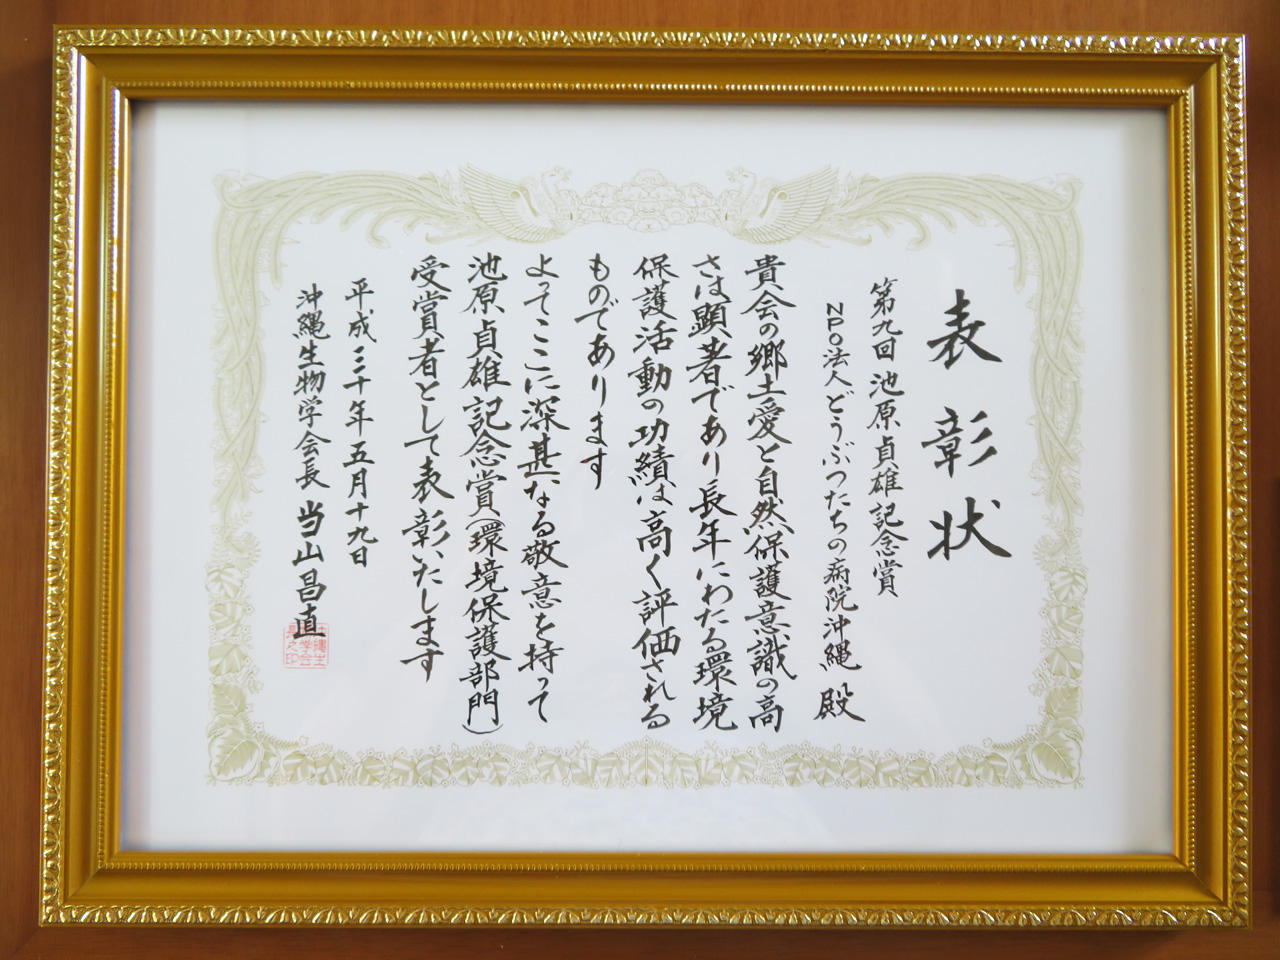 表彰状
第九回池原貞雄記念賞
NPO法人どうぶつたちの病院沖縄 殿
貴会の郷土愛と自然保護意識の高
さは顕著であり長年にわたる環境
保護活動の功績は高く評価される
ものであります
よってここに深甚なる敬意を持って
池原貞雄記念賞(環境保護部門)
受賞者として表彰いたします
平成三十年五月十九日
沖縄生物学会長 当山昌直